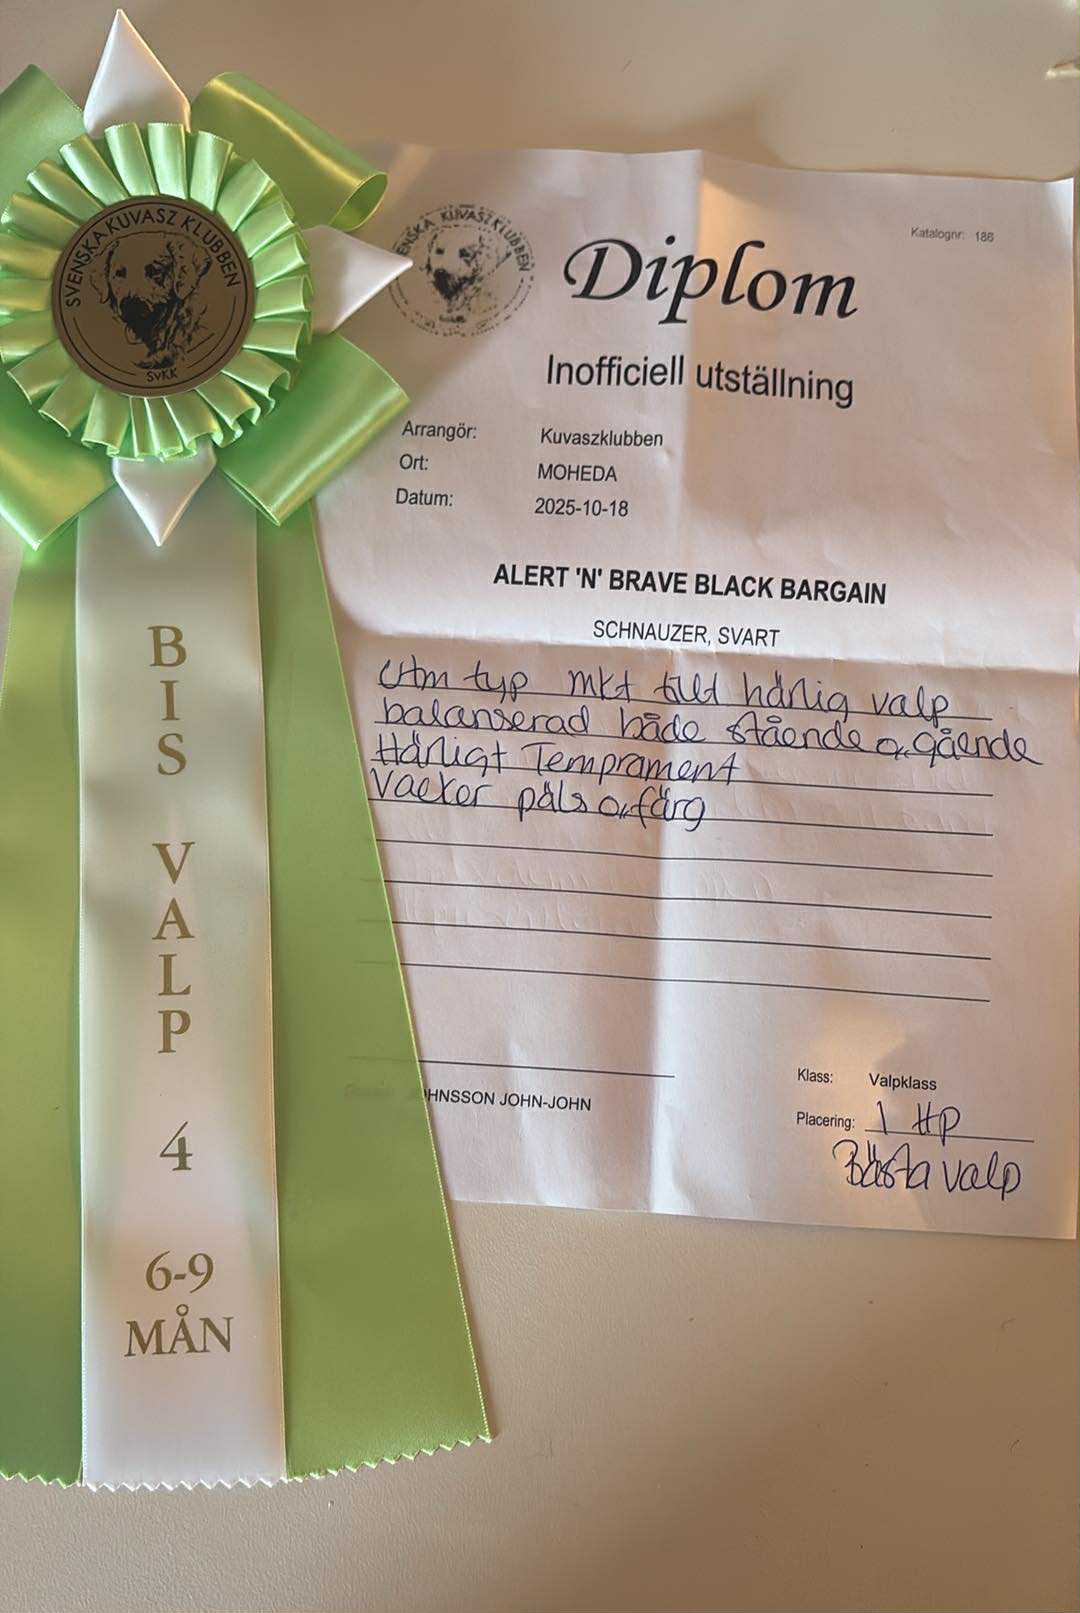 SVENSKA KUVASZ KLUBBEN
SVKK
BIS
VALP
4
6-9
MÅN
ENSKA KUVASZ KLUBBEN
Katalognr: 186
Diplom
Inofficiell utställning
Arrangör: Kuvaszklubben
Ort: MOHEDA
Datum: 2025-10-18
ALERT 'N' BRAVE BLACK BARGAIN
SCHNAUZER, SVART
Utm typ mkt tilld härlig valp
balanserad både stående o. gående
Härligt Temprament
Vacker päls o. färg
HNSSON JOHN-JOHN
Klass: Valpklass
Placering: 1 HP
Bästa valp